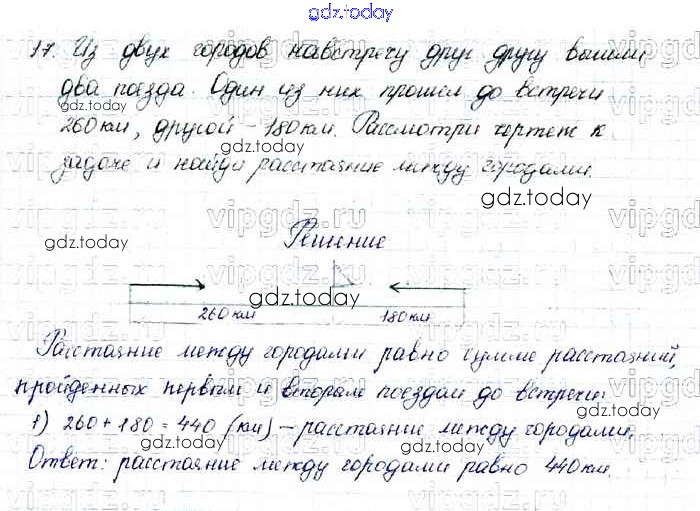 gdz.today
17. Из двух городов навстречу друг другу вышли
два поезда. Один из них прошел до встречи
gdz.today
260 км, другой - 180 км. Рассмотри чертеж к
gdz.today
задаче и найди расстояние между городами.
gdz.today
vipgdz.ru
gdz.today
Решение
gdz.today
260 км 180 км
Расстояние между городами равно сумме расстояний,
gdz.today
пройденных первым и вторым поездом до встречи:
1) 260 + 180 = 440 (км) - расстояние между городами.
gdz.today
Ответ: расстояние между городами равно 440 км.
gdz.today